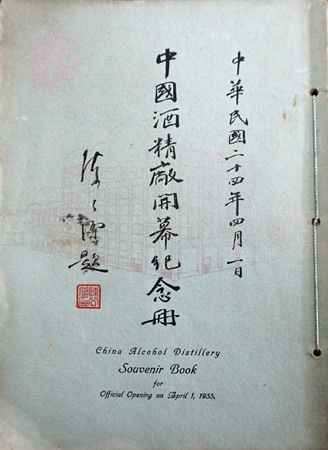 中華民國二十四年四月一日
中國酒精廠開幕紀念冊
陳公博題
China Alcohol Distillery
Souvenir Book
for
Official Opening on April 1, 1935.